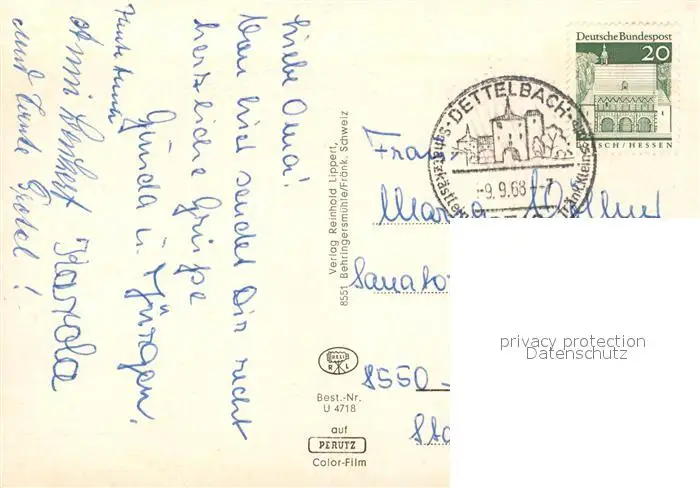 Liebe Oma!
Von hier sendet Dir recht
herzliche Grüße
Gunda u. Jürgen.
Tante
Anni Karola
und Tante Gretel!
Verlag Reinhold Lippert,
8551 Behringersmühle/Fränk. Schweiz
HELI
R L
Best.-Nr.
U 4718
auf
PERUTZ
Color-Film
Deutsche Bundespost
20
LORSCH/HESSEN
DETTELBACH
Schatzkästlein
-9.9.68--7
Frau
Maria
Sanato
8550-
Sta
privacy protection
Datenschutz